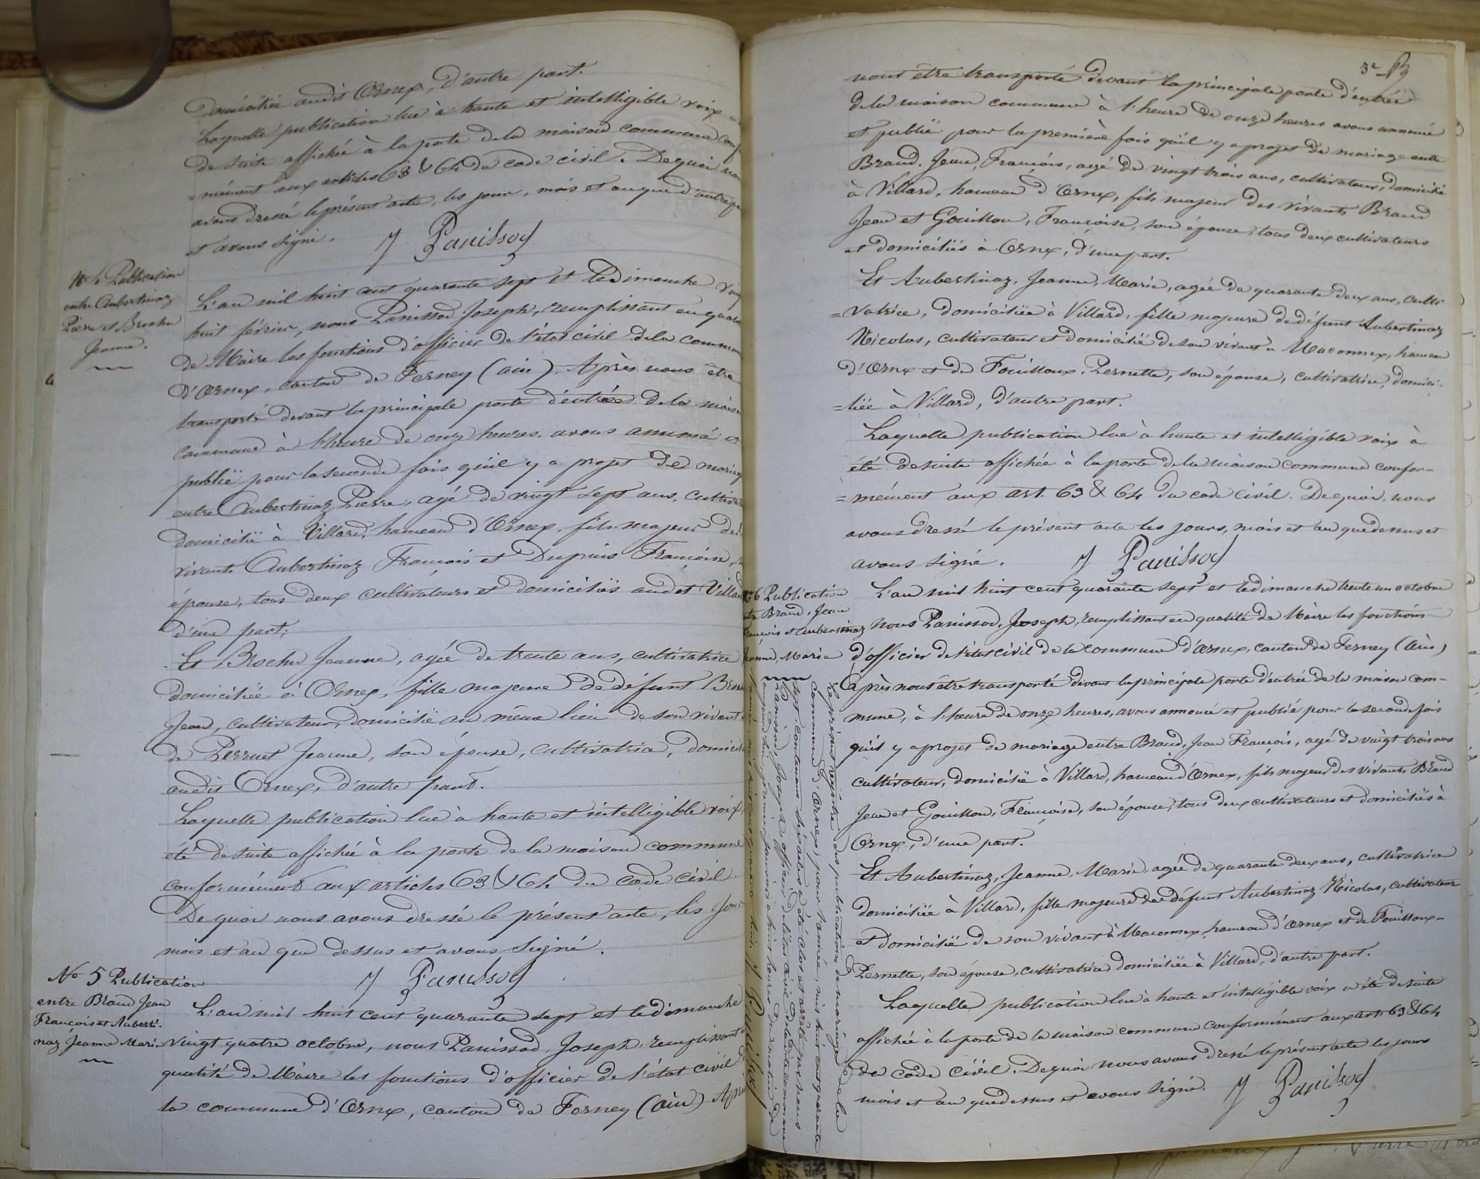 Domiciliée audit Ornex, d'autre part.
Laquelle publication lue à haute et intelligible voix a
de suite affichée à la porte de la maison commune conf
=mément aux articles 63 & 64 du code civil. De quoi nous
avons dressé le présent acte, les jour, mois et an que d'autre p
et avons signé. J Panissod
No 4 Publication
entre Aubertinaz
Pierre et Brochu
Jeanne.
L'an mil huit cent quarante sept et le Dimanche vingt
huit février, nous Panissod Joseph, remplissant en qualité
de Maire les fonctions d'officier de l'état civil de la commune
D'Ornex, canton de Ferney (ain). Après nous être
transporté devant la principale porte d'entrée de la maison
commune à l'heure de onze heures, avons annoncé et
publié pour la seconde fois qu'il y a projet de mariage
entre Aubertinaz Pierre, agé de vingt sept ans, cultivateur
domicilié à Villard, hameau d'Ornex, fils majeur des
vivants Aubertinaz François et Dupuis Françoise, son
épouse, tous deux cultivateurs et domiciliés audit Villard
d'une part;
Et Brochu Jeanne, agée de trente ans, cultivatrice
domiciliée à Ornex, fille majeure de défunt
Jean, cultivateur, domicilié au même lieu de son vivant et
de Perruet Jeanne, son épouse, cultivatrice, domiciliée
audit Ornex, d'autre part.
Laquelle publication lue à haute et intelligible voix a
été de suite affichée à la porte de la maison commune
conformément aux articles 63 & 64 du code civil.
De quoi nous avons dressé le présent acte, les jour
mois et an que dessus et avons signé.
J Panissod
No 5 Publication
entre Braud Jean
François et Auberti-
naz Jeanne Marie
L'an mil huit cent quarante sept et le dimanche
vingt quatre octobre, nous Panissod, Joseph remplissant en
qualité de Maire les fonctions d'officier de l'état civil de
la commune d'Ornex, canton de Ferney (ain) Après
nous être transporté devant la principale porte d'entrée
de la maison commune à l'heure de onze heures avons annoncé
et publié pour la première fois qu'il y a projet de mariage entre
Braud, Jean, François, agé de vingt trois ans, cultivateur, domicilié
à Villard, hameau d'Ornex, fils majeur des vivants Braud
Jean et Gouillon, Françoise, son épouse, tous deux cultivateurs
et domiciliés à Ornex, d'une part.
Et Aubertinaz, Jeanne, Marie, agée de quarante deux ans, culti-
=vatrice, domiciliée à Villard, fille majeure de défunt Aubertinaz
Nicolas, cultivateur et domicilié de son vivant à Maconnex, hameau
d'Ornex et de Fouilloux, Pernette, son épouse, cultivatrice, domici-
=liée à Villard, d'autre part.
Laquelle publication lue à haute et intelligible voix à
été de suite affichée à la porte de la maison commune confor-
=mément aux art. 63 & 64 du code civil. De quoi nous
avons dressé le présent acte les jours, mois et an que dessus et
avons signé. J Panissod
No 6 Publication
entre Braud, Jean
François et Aubertinaz
Jeanne, Marie
L'an mil huit cent quarante sept et le dimanche trente un octobre
Nous Panissod, Joseph, remplissant en qualité de Maire les fonctions
d'officier de l'état civil de la commune d'Ornex, canton de Ferney (Ain)
Après nous être transporté devant la principale porte d'entrée de la maison com-
mune, à l'heure de onze heures, avons annoncé et publié pour la seconde fois
qu'il y a projet de mariage entre Braud, Jean François, agé de vingt trois ans
cultivateur, domicilié à Villard, hameau d'Ornex, fils majeur des vivants Braud
Jean et Gouillon, Françoise, son épouse, tous deux cultivateurs et domiciliés à
Ornex, d'une part.
Et Aubertinaz, Jeanne Marie agée de quarante deux ans, cultivatrice
domiciliée à Villard, fille majeure de défunt Aubertinaz Nicolas, cultivateur
et domicilié de son vivant à Maconnex, hameau d'Ornex et de Fouilloux
Pernette, son épouse, cultivatrice domiciliée à Villard, d'autre part.
Laquelle publication lue à haute et intelligible voix a été de suite
affichée à la porte de la maison commune conformément aux arts 63 & 64
du Code Civil. De quoi nous avons dressé le présent acte les jours
mois et an que dessus et avons signé J Panissod
Le présent registre des publications de mariage de la
commune d'Ornex, pour l'année mil huit cent quarante
sept,